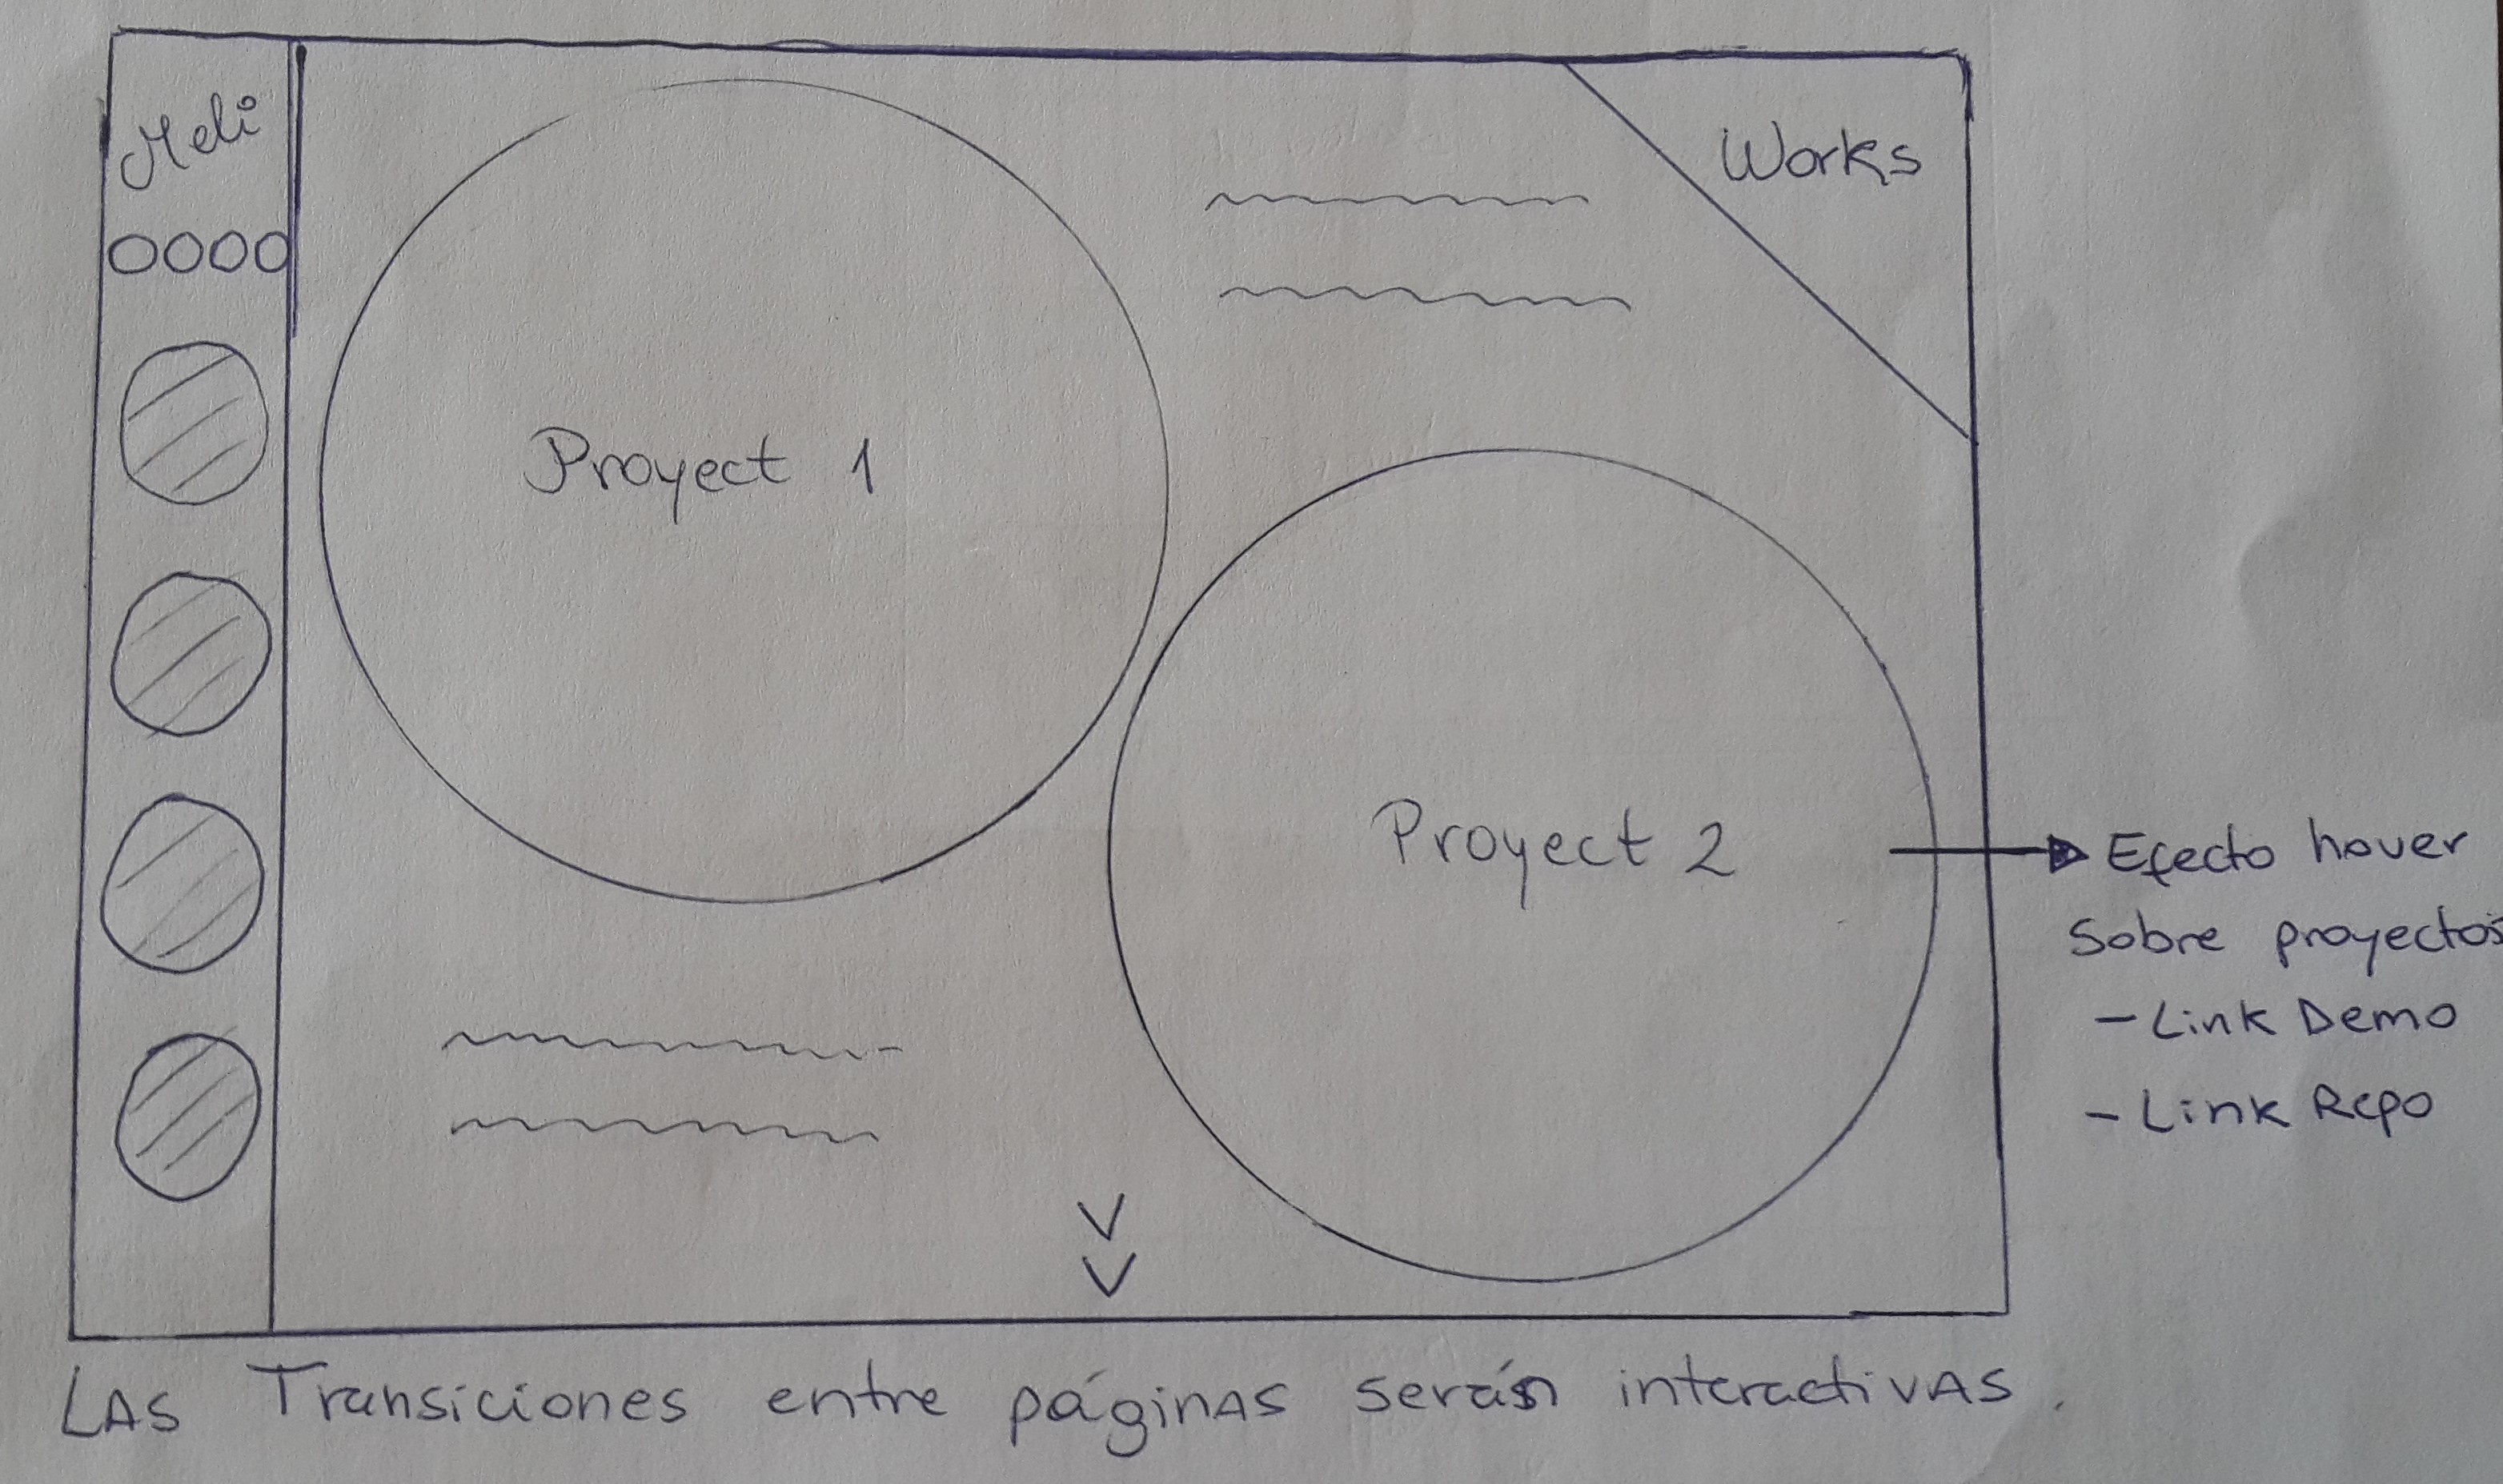 Meli
Works
Proyect 1
Proyect 2
Efecto hover
Sobre proyectos
- Link Demo
- Link Repo
LAS Transiciones entre páginas serán interactivas.